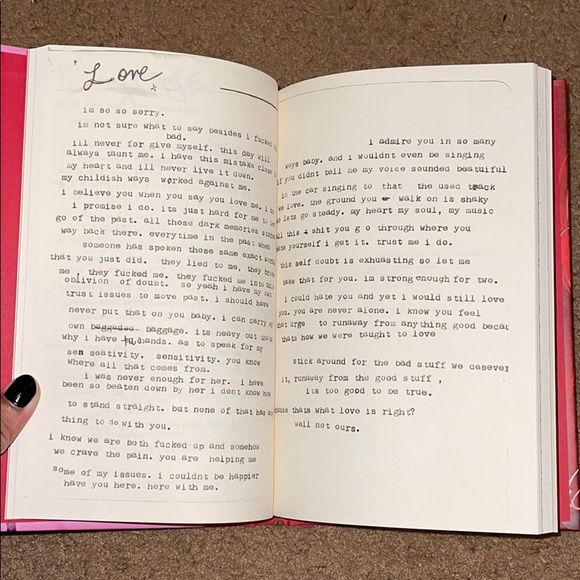 Love
im so so sorry.
im not sure what to say besides i fucked up
bad.
ill never for give myself. this day will
always taunt me. i have this mistake close
my heart and ill never live it down.
my childish ways worked against me.
i believe you when you say you love me. i
i promise i do. its just hard for me to
go of the past. all those dark memories
way back there. everytime in the past when
someone has spoken those same exact
that you just did. they lied to me, they
me , they fucked me. they fucked me into this
oblivion of doubt. so yeah i have my own
trust issues to move past. i should have
never put that on you baby. i can carry my
own baggaded baggage. its heavy but
why i have hands. as to speak for my
sen seativity. sensitivity. you know
where all that comes from.
i was never enough for her. i have
been so beaten down by her i dont know how
to stand straight. but none of that has any
thing to do with you.
i know we are both fucked up and somehow
we crave the pain. you are helping me
some of my issues. i couldnt be happier
have you here. here with me.
i admire you in so many
ways baby. and i wouldnt even be singing
if you didnt tell me my voice sounded beatuiful
in the car singing to that the used track
we love. the ground you walk on is shaky
lets go steady. my heart my soul, my music
all this shit you g o through where you
hate yourself i get it. trust me i do.
this self doubt is exhuasting so let me
take that for you. im strong enough for two.
i could hate you and yet i would still love
you. you are never alone. i know you feel
that urge to runaway from anything good becau
thats how we were taught to love
stick around for the bad stuff we desever
it, runaway from the good stuff ,
its too good to be true.
cause thats what love is right?
well not ours.